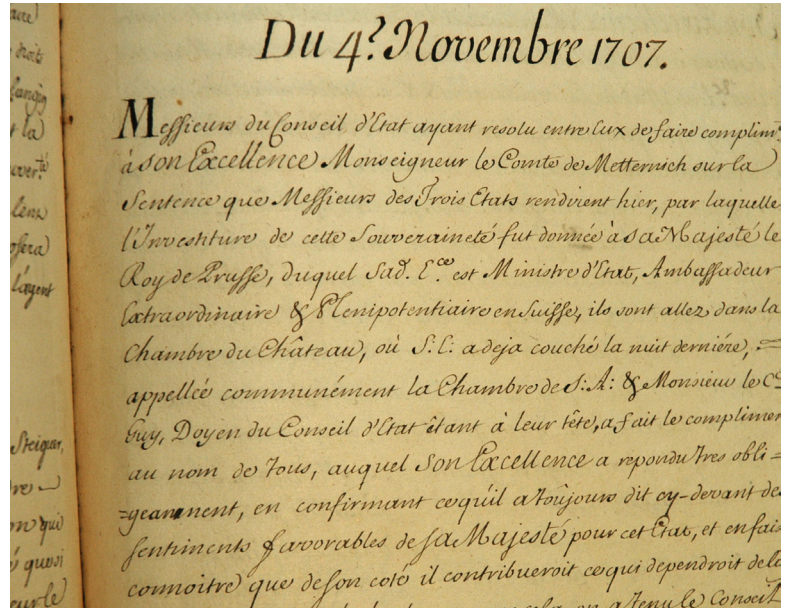 Du 4.e Novembre 1707.
Messieurs du Conseil d'Etat ayant resolu entre Eux de faire complim.t
à Son Excellence Monseigneur le Comte de Metternich sur la
Sentence que Messieurs des Trois Etats rendirent hier, par laquelle
l'Investiture de cette Souveraineté fut donnée à Sa Majesté le
Roy de Prusse, duquel Sad. E.ce est Ministre d'Etat, Ambassadeur
Extraordinaire & Plenipotentiaire en Suisse, ils sont allez dans la
Chambre du Château, où S. E: a deja couché la nuit derniére, =
appellée communément la Chambre de S: A: & Monsieur le
Guy, Doyen du Conseil d'Etat étant à leur tête, a fait le complimen
au nom de Tous, auquel Son Excellence a repondu tres obli=
=geamment, en confirmant ce qu'il a toûjours dit cy-devant des
sentiments favorables de Sa Majesté pour cet Etat, et en fais
connoitre que de son coté il contribueroit ce qui dependroit de la
droits
la
leur
l'ayent
Steiguer,
qui